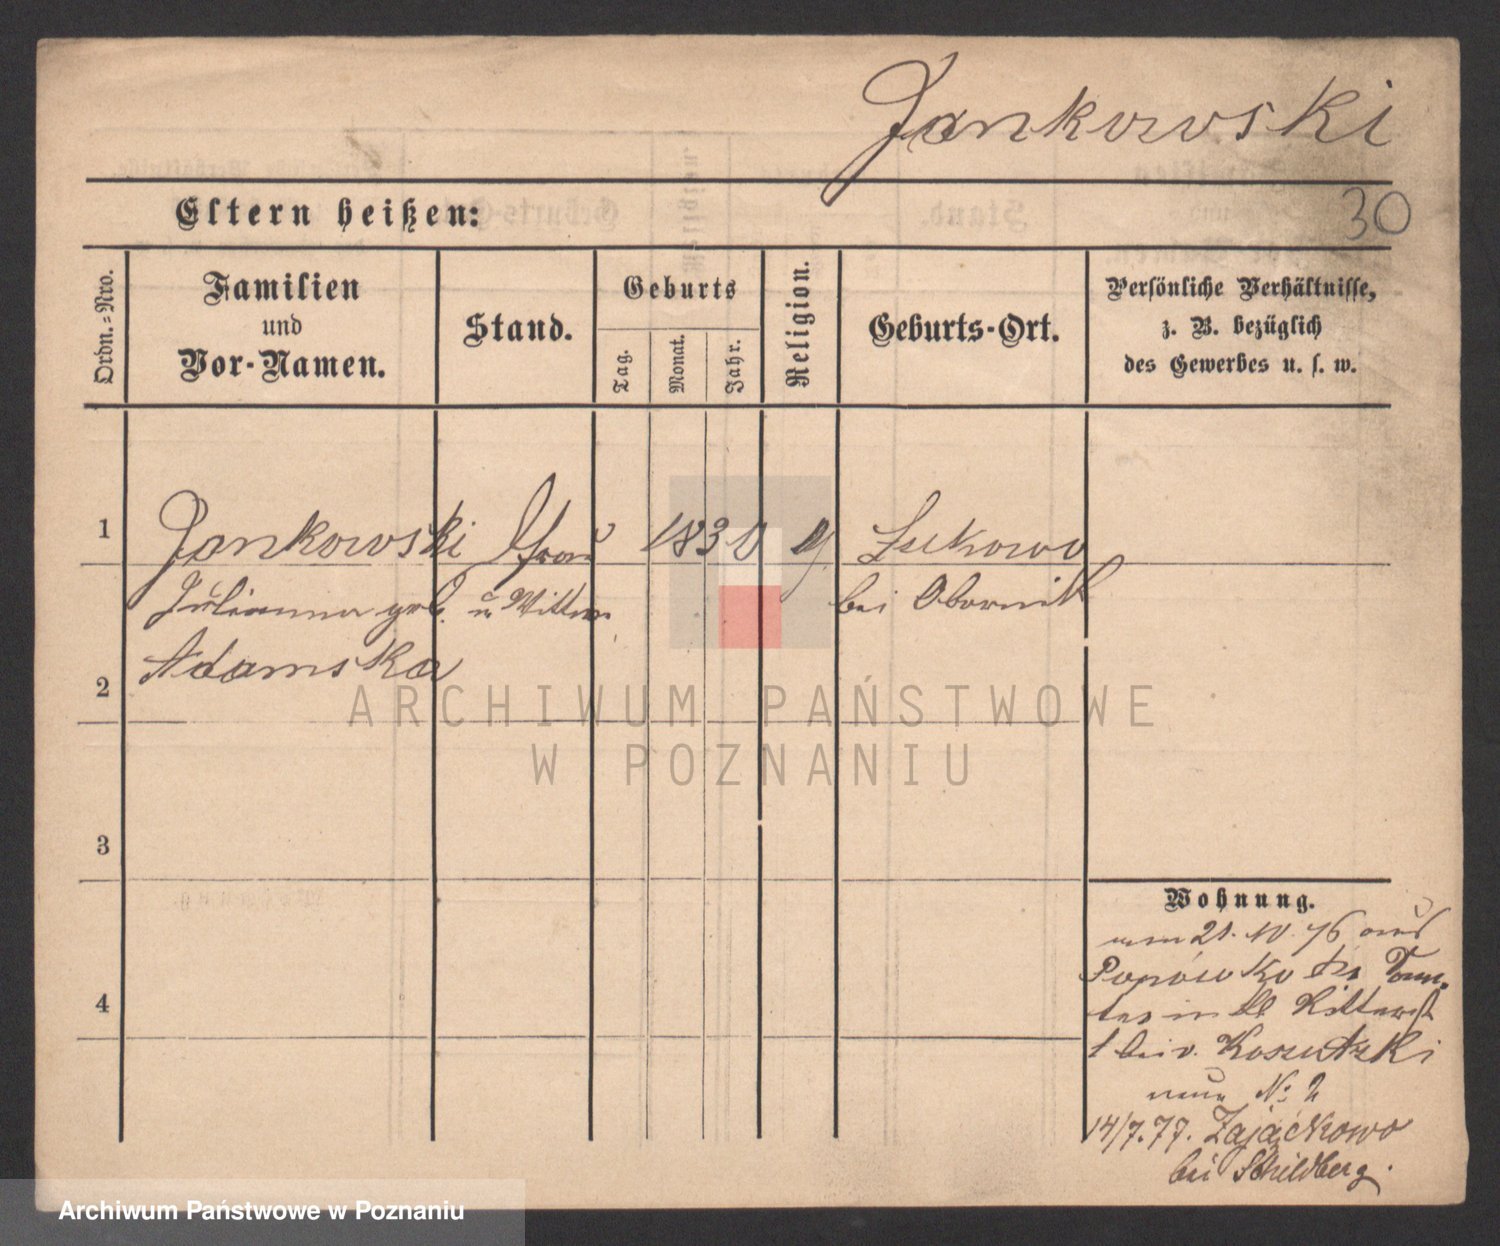 Jankowski
Eltern heißen:
30
Ordn.-Nro.
Familien
und
Vor-Namen.
Stand.
Geburts
Tag.
Monat.
Jahr.
Religion.
Geburts-Ort.
Persönliche Verhältnisse,
z. B. bezüglich
des Gewerbes u. s. w.
1
Jankowski Frau 1830 Lukowo
Julianna geb. u Wittwe bei Obornik
Adamska
2
3
4
Wohnung.
21. 10. 76 aus
Popówko
bei v. Koszutzki
neue No 2
14/7.77. Zajączkowo
bei Schildberg.
ARCHIWUM PAŃSTWOWE
W POZNANIU
Archiwum Państwowe w Poznaniu